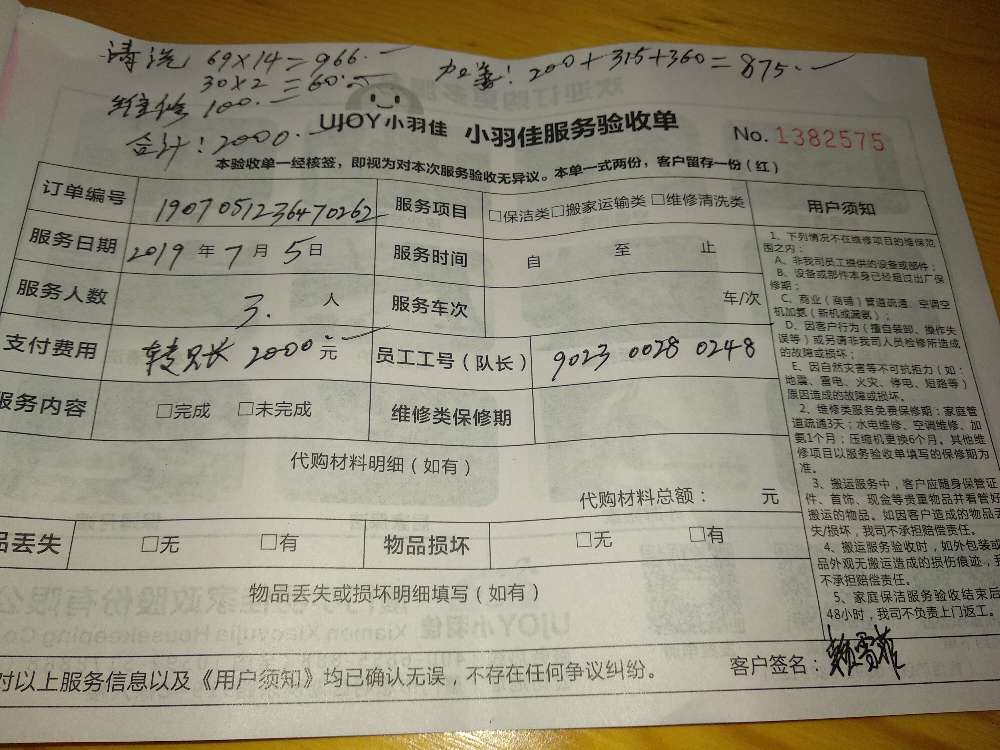 清洗 69×14=966. 加上等: 200+315+360=875.
30×2=60.
维修 100.
合计: 2000.
UJOY小羽佳 小羽佳服务验收单 No.1382575
本验收单一经核签，即视为对本次服务验收无异议。本单一式两份，客户留存一份（红）
订单编号 1907051236470262 服务项目 □保洁类□搬家运输类 □维修清洗类
服务日期 2019 年 7 月 5 日 服务时间 自 至 止
服务人数 3. 人 服务车次 车/次
支付费用 2000 元 员工工号（队长） 9023 0028 0248
服务内容 □完成 □未完成 维修类保修期
代购材料明细（如有）
代购材料总额： 元
品丢失 □无 □有 物品损坏 □无 □有
物品丢失或损坏明细填写（如有）
对以上服务信息以及《用户须知》均已确认无误，不存在任何争议纠纷。 客户签名：
用户须知
1、下列情况不在维修项目的维保范
围之内：
A、非我司员工提供的设备或部件；
B、设备或部件本身已经超过出厂保
修期；
C、商业（商铺）管道疏清、空调空
机加氨（新机或漏氨）；
D、因客户行为（擅自装卸、操作失
误等）或另请非我司人员检修所造成
的故障或损坏；
E、因自然灾害等不可抗拒力（如：
地震、雷电、火灾、停电、短路等）
原因造成的故障或损坏。
2、维修类服务免费保修期：家庭管
道疏通3天；水电维修、空调维修、加
氨1个月；压缩机更换6个月。其他维
修项目以服务验收单填写的保修期为
准。
3、搬运服务中，客户应随身保管证
件、首饰、现金等贵重物品并看管好
搬运的物品。如因客户造成的物品丢
失/损坏，我司不承担赔偿责任。
4、搬运服务验收时，如外包装或
品外观无搬运造成的损伤痕迹，我
不承担赔偿责任。
5、家庭保洁服务验收结束后
48小时，我司不负责上门返工。